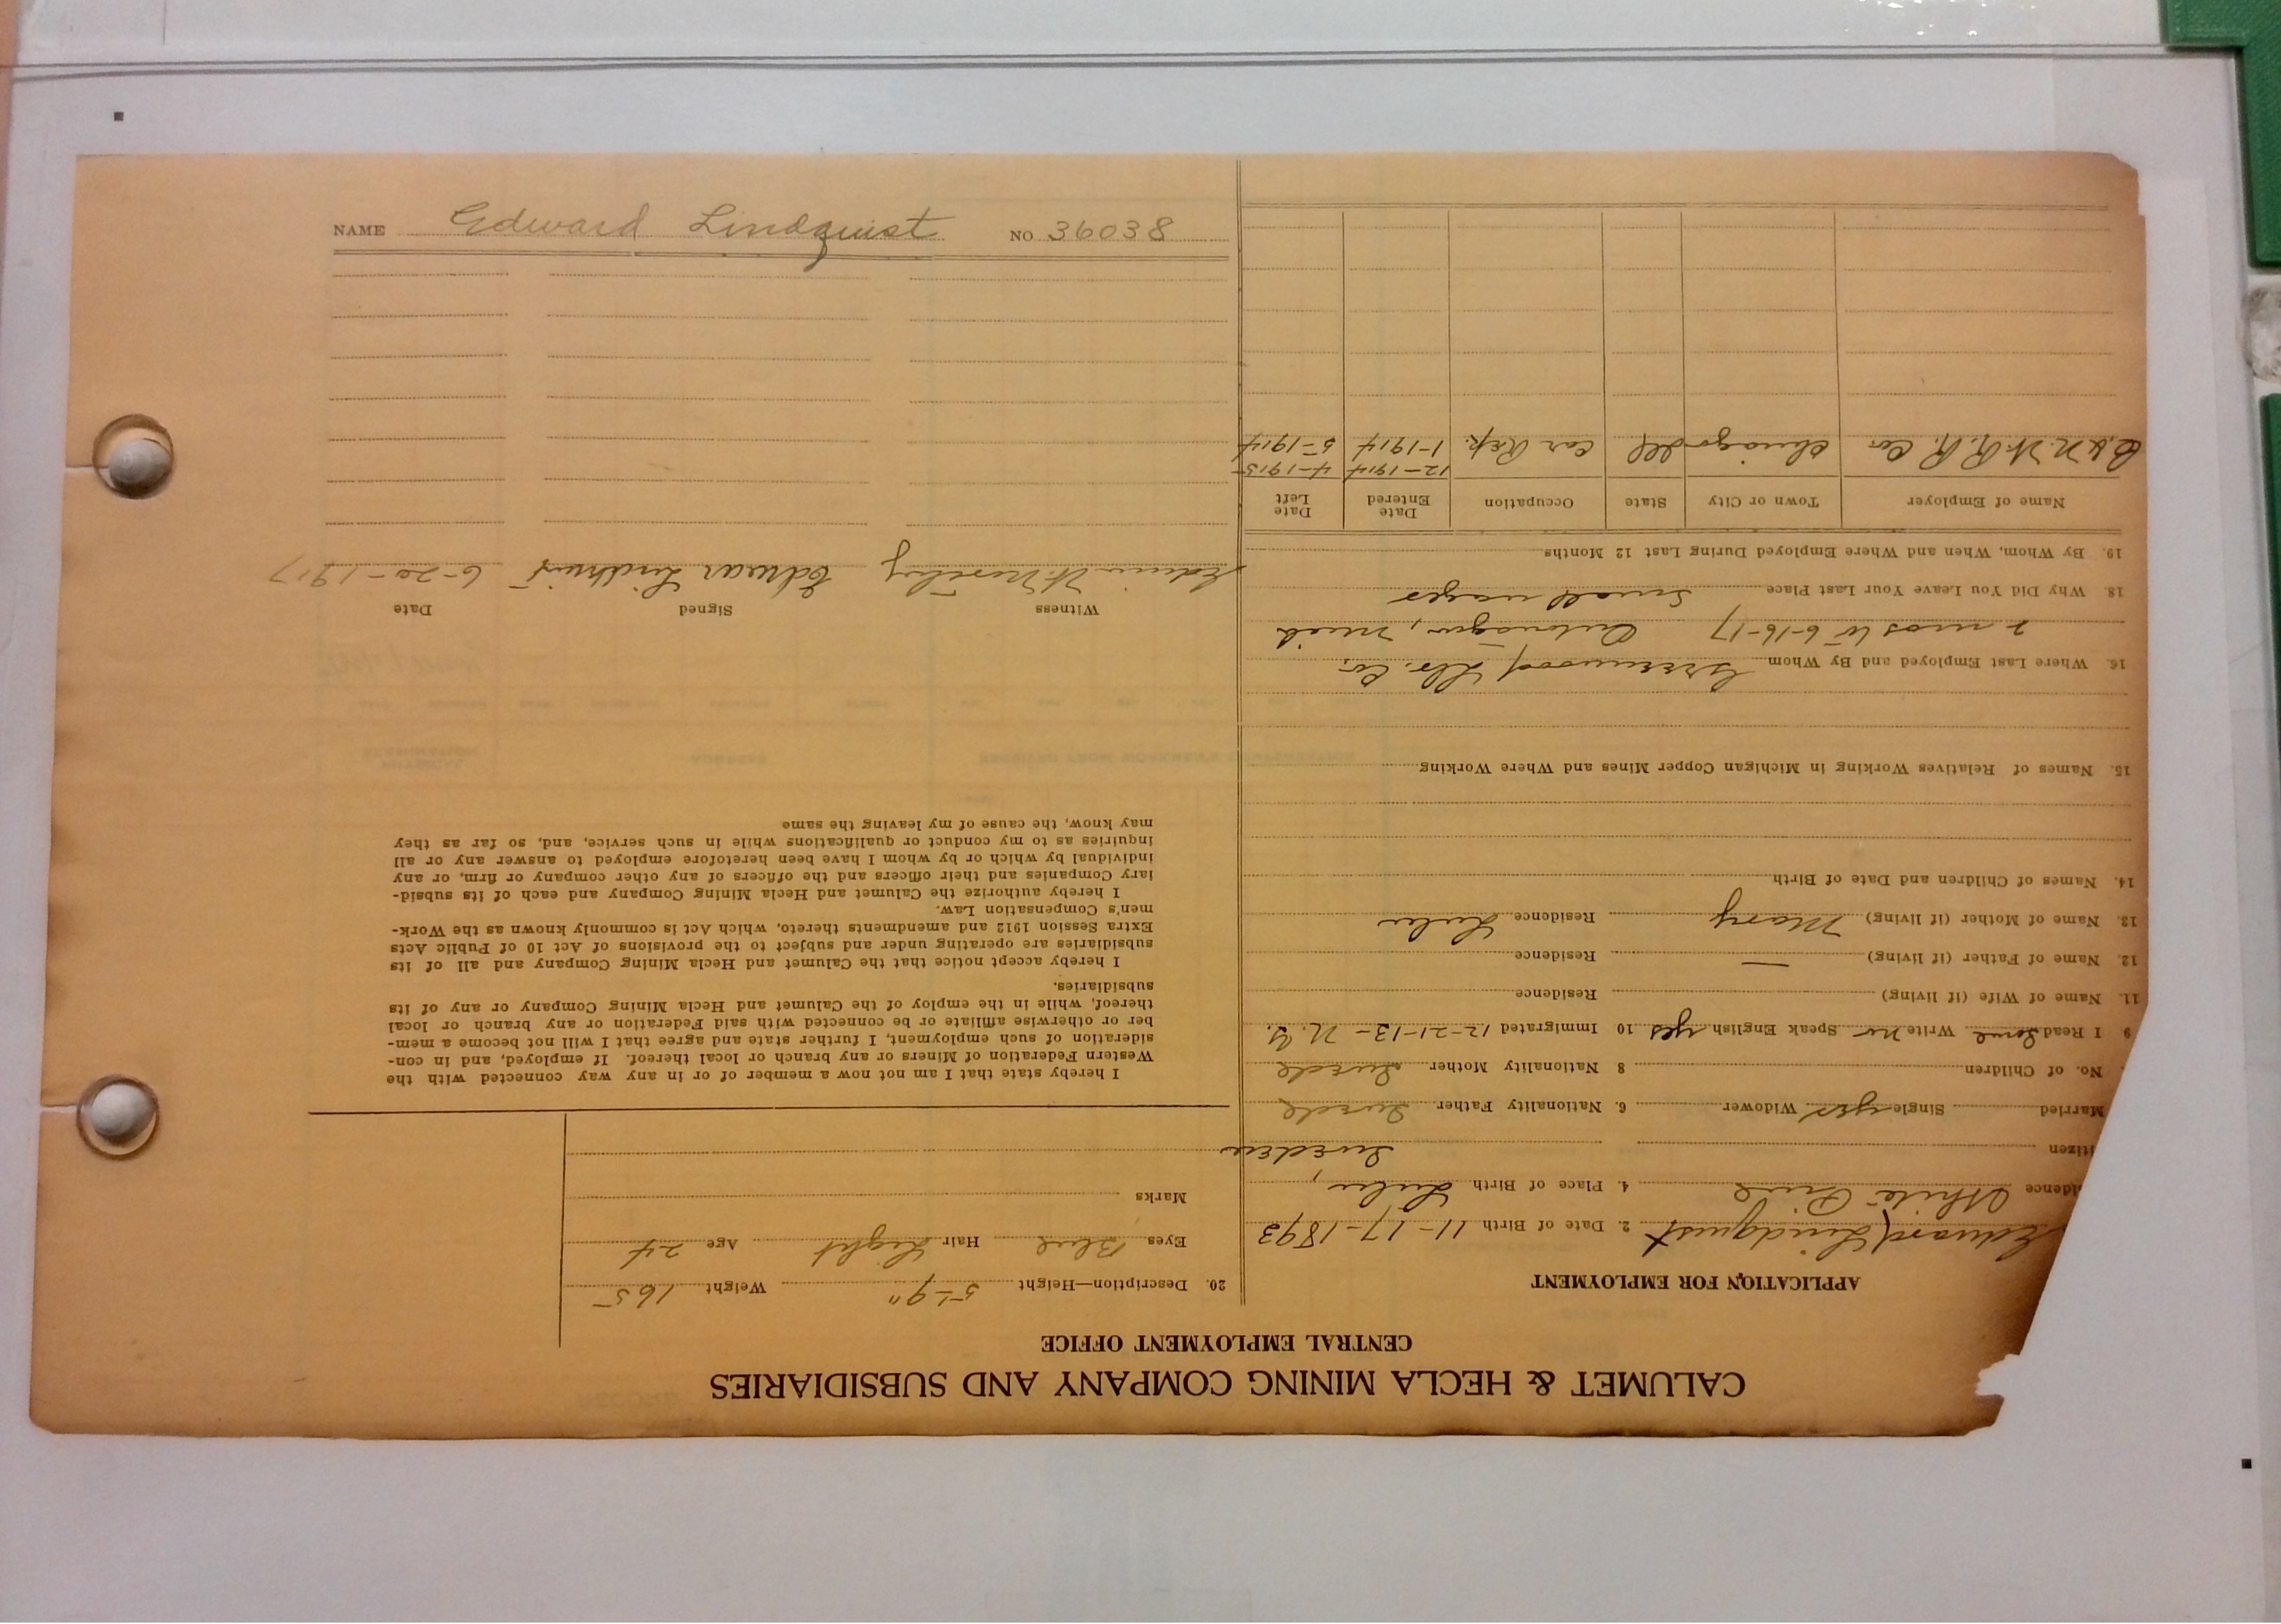 CALUMET & HECLA MINING COMPANY AND SUBSIDIARIES
CENTRAL EMPLOYMENT OFFICE
APPLICATION FOR EMPLOYMENT
Edward Lindquist 2. Date of Birth 11-17-1893
idence White Pine 4. Place of Birth Lulea,
itizen Sweden
Married Single yes Widower 6. Nationality Father Swede
No. of Children 8 Nationality Mother Swede
9 I Read Some Write no Speak English yes 10 Immigrated 12-21-13- N.Y.
11. Name of Wife (if living) Residence
12. Name of Father (if living) — Residence
13. Name of Mother (if living) Mary Residence Lulea
14. Names of Children and Date of Birth
15. Names of Relatives Working in Michigan Copper Mines and Where Working
16. Where Last Employed and By Whom Greenwood Lbr. Co.
2 mos to 6-16-17 Ontonagon, Mich
18. Why Did You Leave Your Last Place Small wages
19. By Whom, When and Where Employed During Last 12 Months
Name of Employer Town or City State Occupation Date Entered Date Left
12-1914 4-1915
C. & N. W. R. R. Co. Chicago Ill Car Rep. 1-1914 5-1914
20. Description—Height 5'-9" Weight 165
Eyes Blue Hair Light Age 24
Marks
I hereby state that I am not now a member of or in any way connected with the
Western Federation of Miners or any branch or local thereof. If employed, and in con-
sideration of such employment, I further state and agree that I will not become a mem-
ber or otherwise affiliate or be connected with said Federation or any branch or local
thereof, while in the employ of the Calumet and Hecla Mining Company or any of its
subsidiaries.
I hereby accept notice that the Calumet and Hecla Mining Company and all of its
subsidiaries are operating under and subject to the provisions of Act 10 of Public Acts
Extra Session 1912 and amendments thereto, which Act is commonly known as the Work-
men's Compensation Law.
I hereby authorize the Calumet and Hecla Mining Company and each of its subsid-
iary Companies and their officers and the officers of any other company or firm, or any
individual by which or by whom I have been heretofore employed to answer any or all
inquiries as to my conduct or qualifications while in such service, and, so far as they
may know, the cause of my leaving the same
Witness Signed Date
Edwar Lindkuist 6-20-1917
NAME Edward Lindquist NO 36038